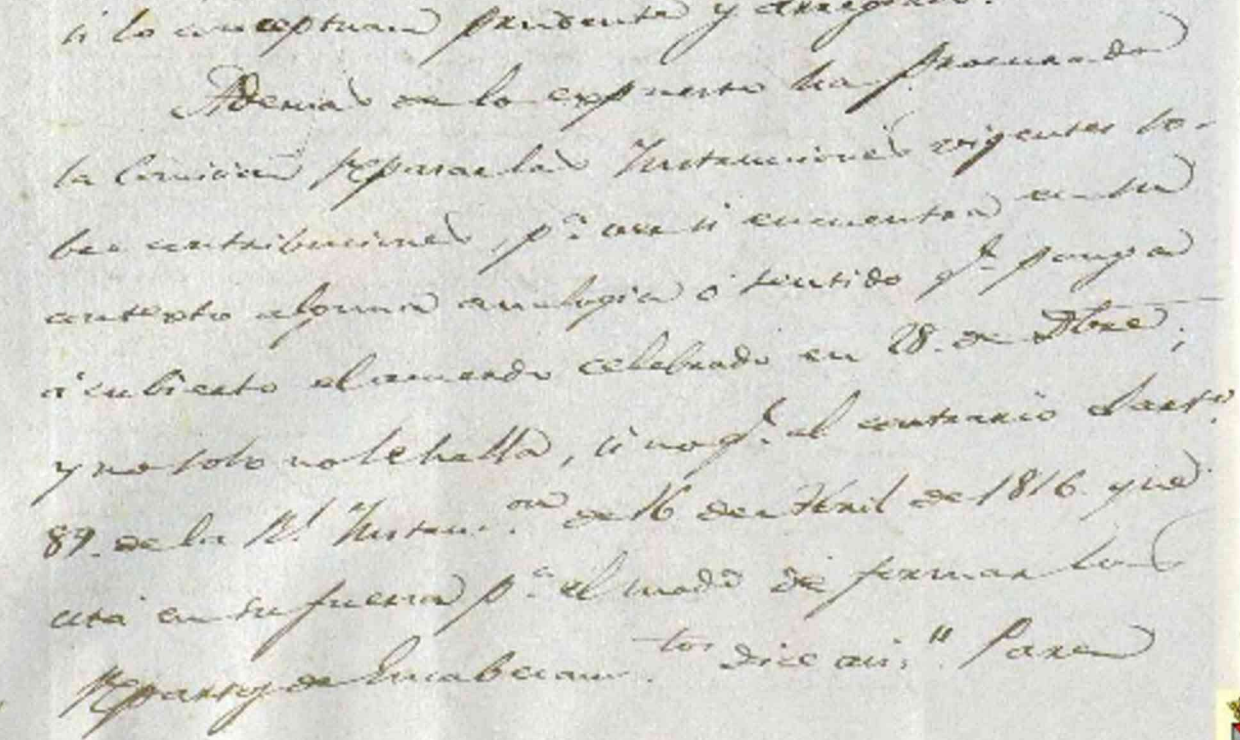 si lo conceptuan prudente y arreglado.
Ademas de lo expuesto ha procurado
la Comision repasar las Instrucciones vigentes so-
bre contribuciones, p.ª ver si encuentra en su
contexto alguna analogia ó sentido q.e ponga
á cubierto el acuerdo celebrado en 28. de Dbre;
y no solo no le halla, si no q.e al contrario el art.o
89. de la R.l Instruc.on de 16 de Abril de 1816. que
está en su fuerza p.ª el modo de formar los
repartos de Encabezam.tos dice asi: " Para